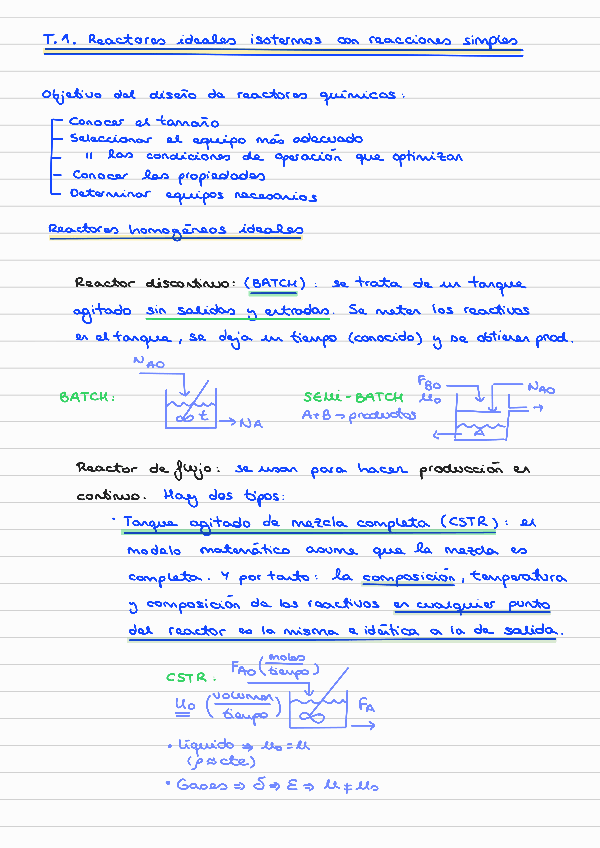 T.1. Reactores ideales isotermos con reacciones simples
Objetivo del diseño de reactores químicos:
Conocer el tamaño
Seleccionar el equipo más adecuado
" las condiciones de operación que optimizan
Conocer las propiedades
Determinar equipos necesarios
Reactores homogéneos ideales
Reactor discontinuo: (BATCH): se trata de un tanque
agitado sin salidas y entradas. Se meten los reactivos
en el tanque, se deja un tiempo (conocido) y se obtienen prod.
NAO
BATCH:
t
→ NA
SEMI-BATCH
A+B → productos
FBO
μo
NAO
A
Reactor de flujo: se usan para hacer producción en
continuo. Hay dos tipos:
· Tanque agitado de mezcla completa (CSTR): el
modelo matemático asume que la mezcla es
completa. Y por tanto: la composición, temperatura
y composición de los reactivos en cualquier punto
del reactor es la misma e idéntica a la de salida.
CSTR.
FAO (moles/tiempo)
μo (volumen/tiempo)
FA
• Líquido ⇒ μo = μ
(ρ ≈ cte)
• Gases ⇒ δ ⇒ ε ⇒ μ ≠ μo